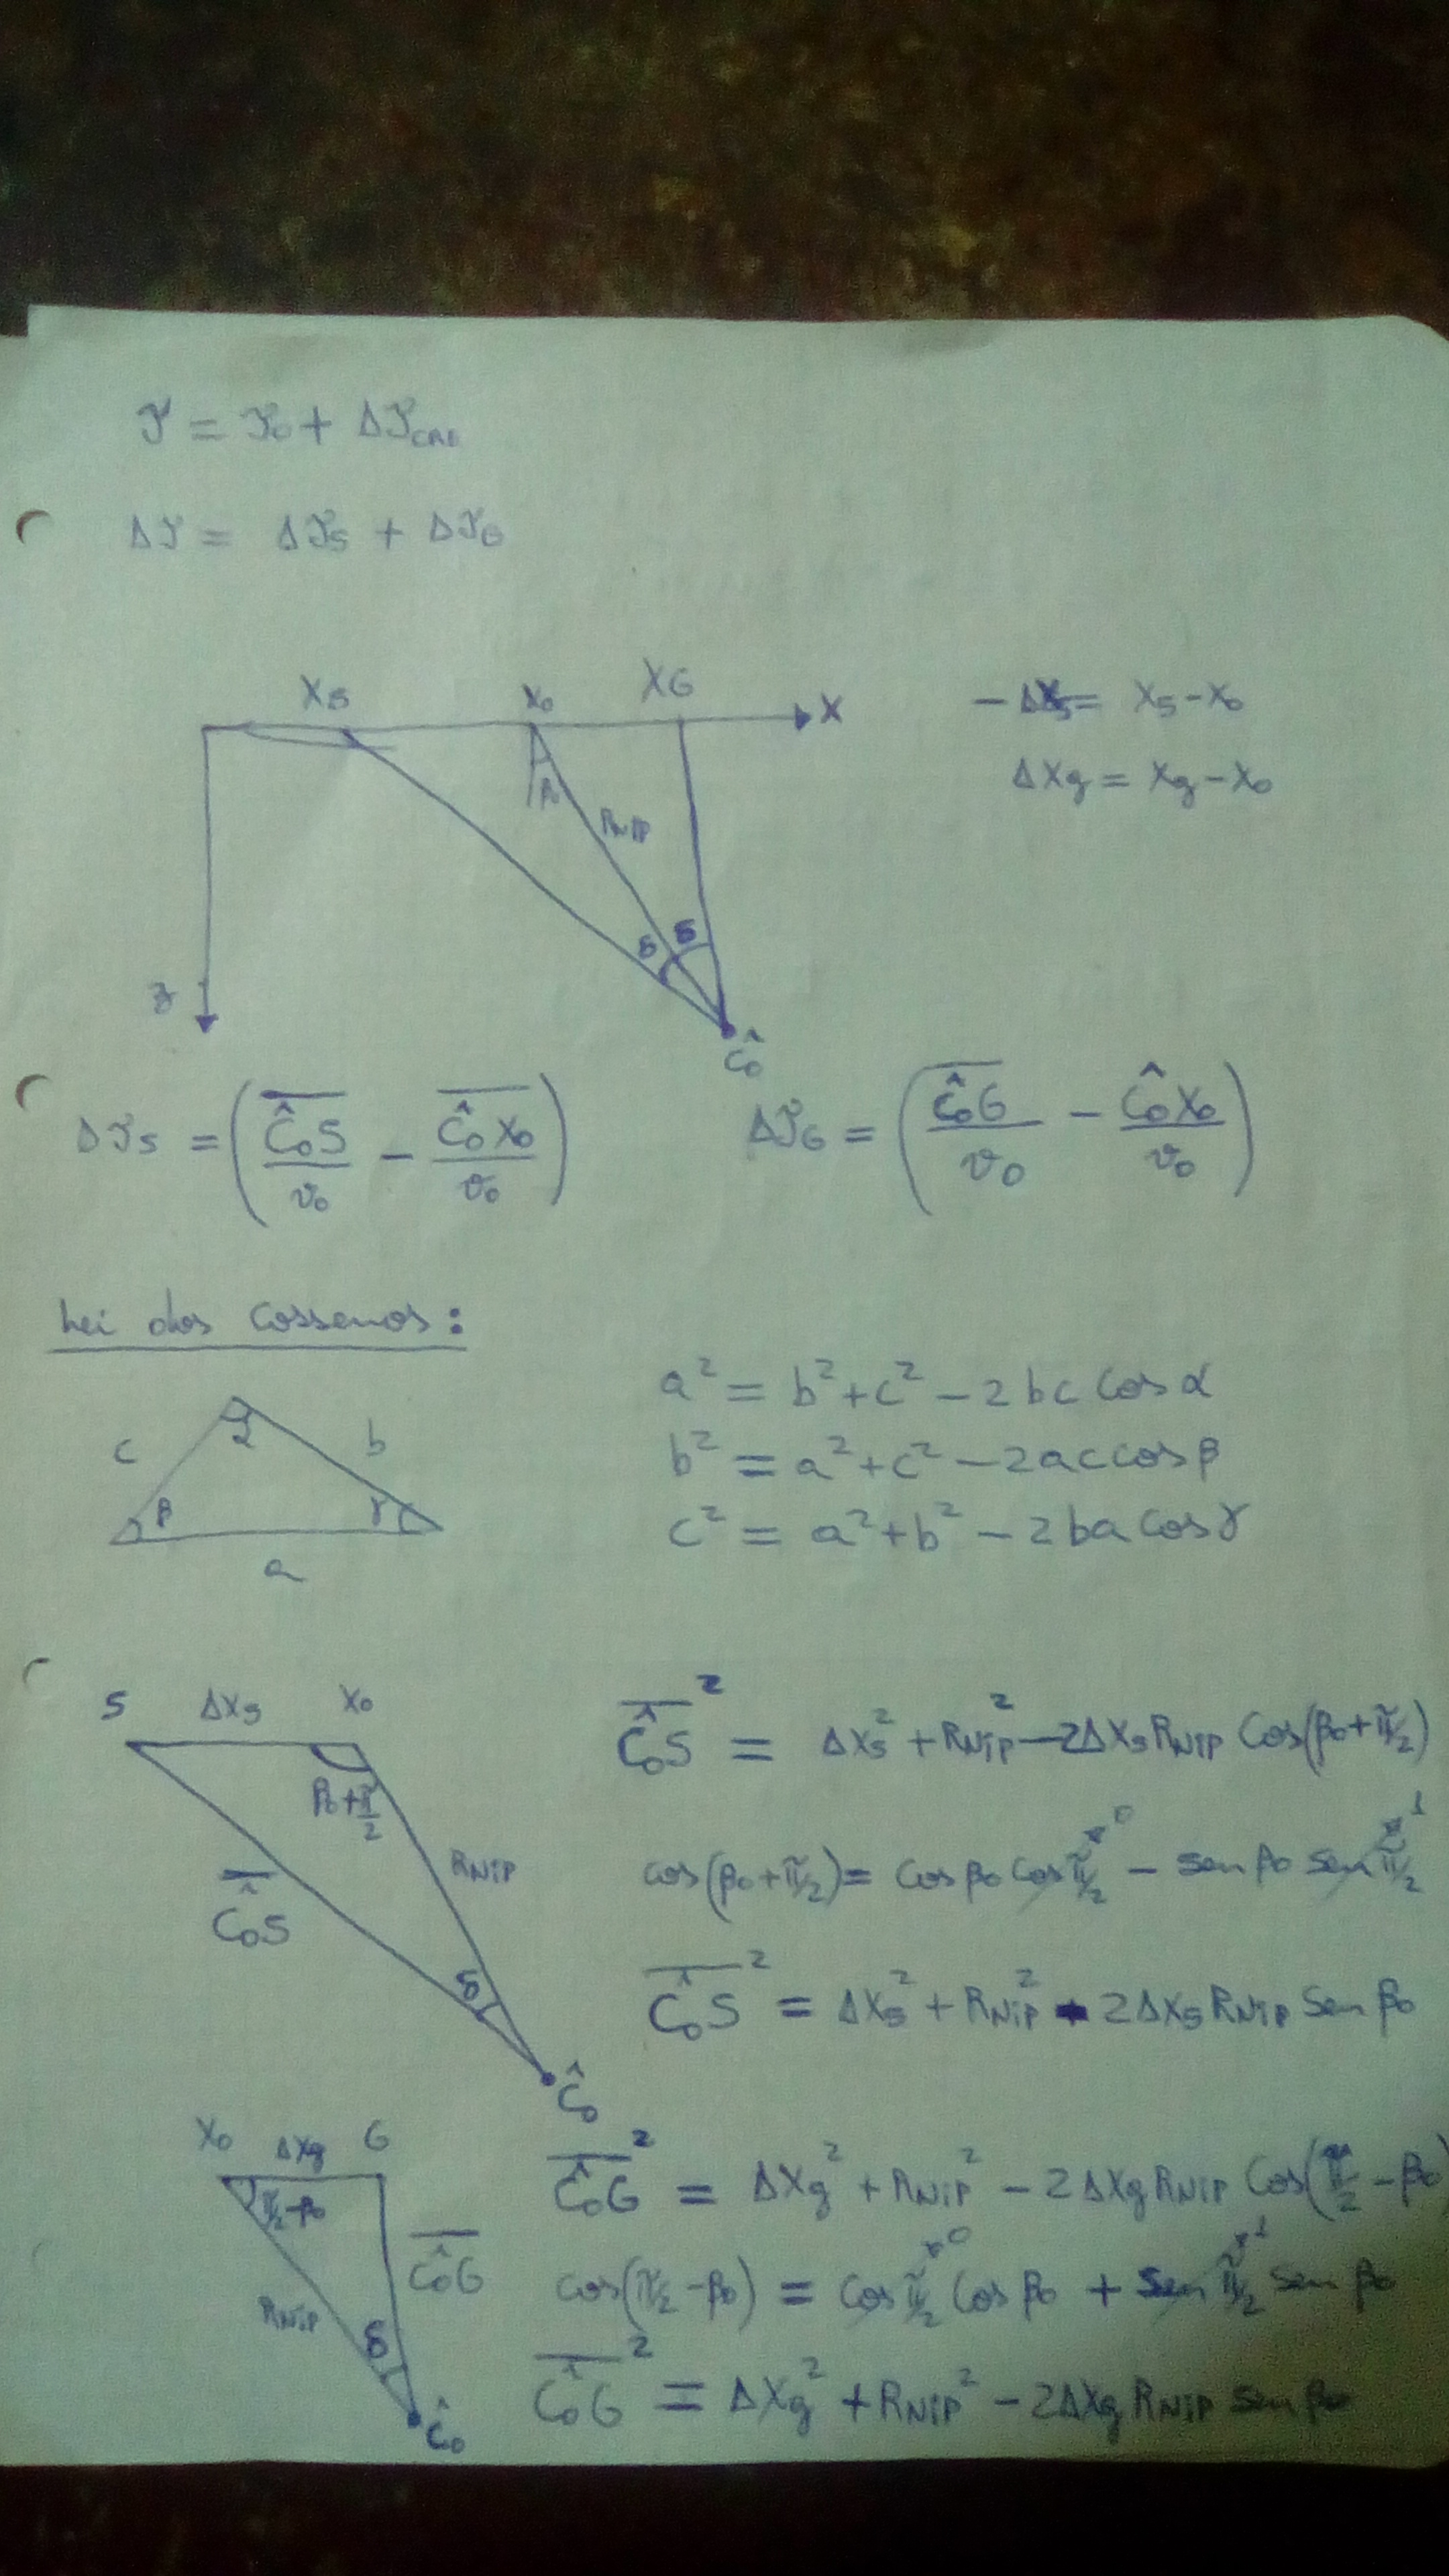 𝒯 = 𝒯₀ + Δ𝒯CRE
Δ𝒯 = Δ𝒯s + Δ𝒯G
Xs X₀ XG X
-ΔXs = Xs - X₀
ΔXg = Xg - X₀
β₀ RNIP
δ δ
z
Ĉ₀
Δ𝒯s = (Ĉ₀S/v₀ - Ĉ₀X₀/v₀) Δ𝒯G = (Ĉ₀G/v₀ - Ĉ₀X₀/v₀)
Lei dos Cossenos:
c α b
β γ
a
a² = b² + c² - 2bc cos α
b² = a² + c² - 2ac cos β
c² = a² + b² - 2ba cos γ
S ΔXs X₀
β₀ + π/2
RNIP
Ĉ₀S
δ
Ĉ₀
Ĉ₀S² = ΔXs² + RNIP² - 2ΔXs RNIP Cos(β₀ + π/2)
cos(β₀ + π/2) = Cos β₀ Cos π/2 ⁰ - sen β₀ sen π/2 ¹
Ĉ₀S² = ΔXs² + RNIP² + 2ΔXs RNIP Sen β₀
X₀ ΔXg G
π/2 - β₀
Ĉ₀G
RNIP
δ
Ĉ₀
Ĉ₀G² = ΔXg² + RNIP² - 2ΔXg RNIP Cos(π/2 - β₀)
cos(π/2 - β₀) = Cos π/2 ⁰ Cos β₀ + Sen π/2 ¹ sen β₀
Ĉ₀G² = ΔXg² + RNIP² - 2ΔXg RNIP sen β₀